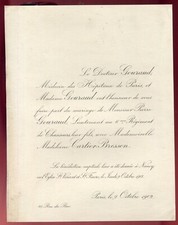 Le Docteur Gouraud,
Médecin des Hôpitaux de Paris, et
Madame Gouraud ont l'honneur de vous
faire part du mariage de Monsieur Pierre
Gouraud, Lieutenant au Régiment
de Chasseurs, leur fils, avec Mademoiselle
Madeleine Cartier-Bresson.
La bénédiction nuptiale leur a été donnée à Nancy
en l'Eglise St le Jeudi Octobre 1902.
Paris, le Octobre 1902
Rue du Bac